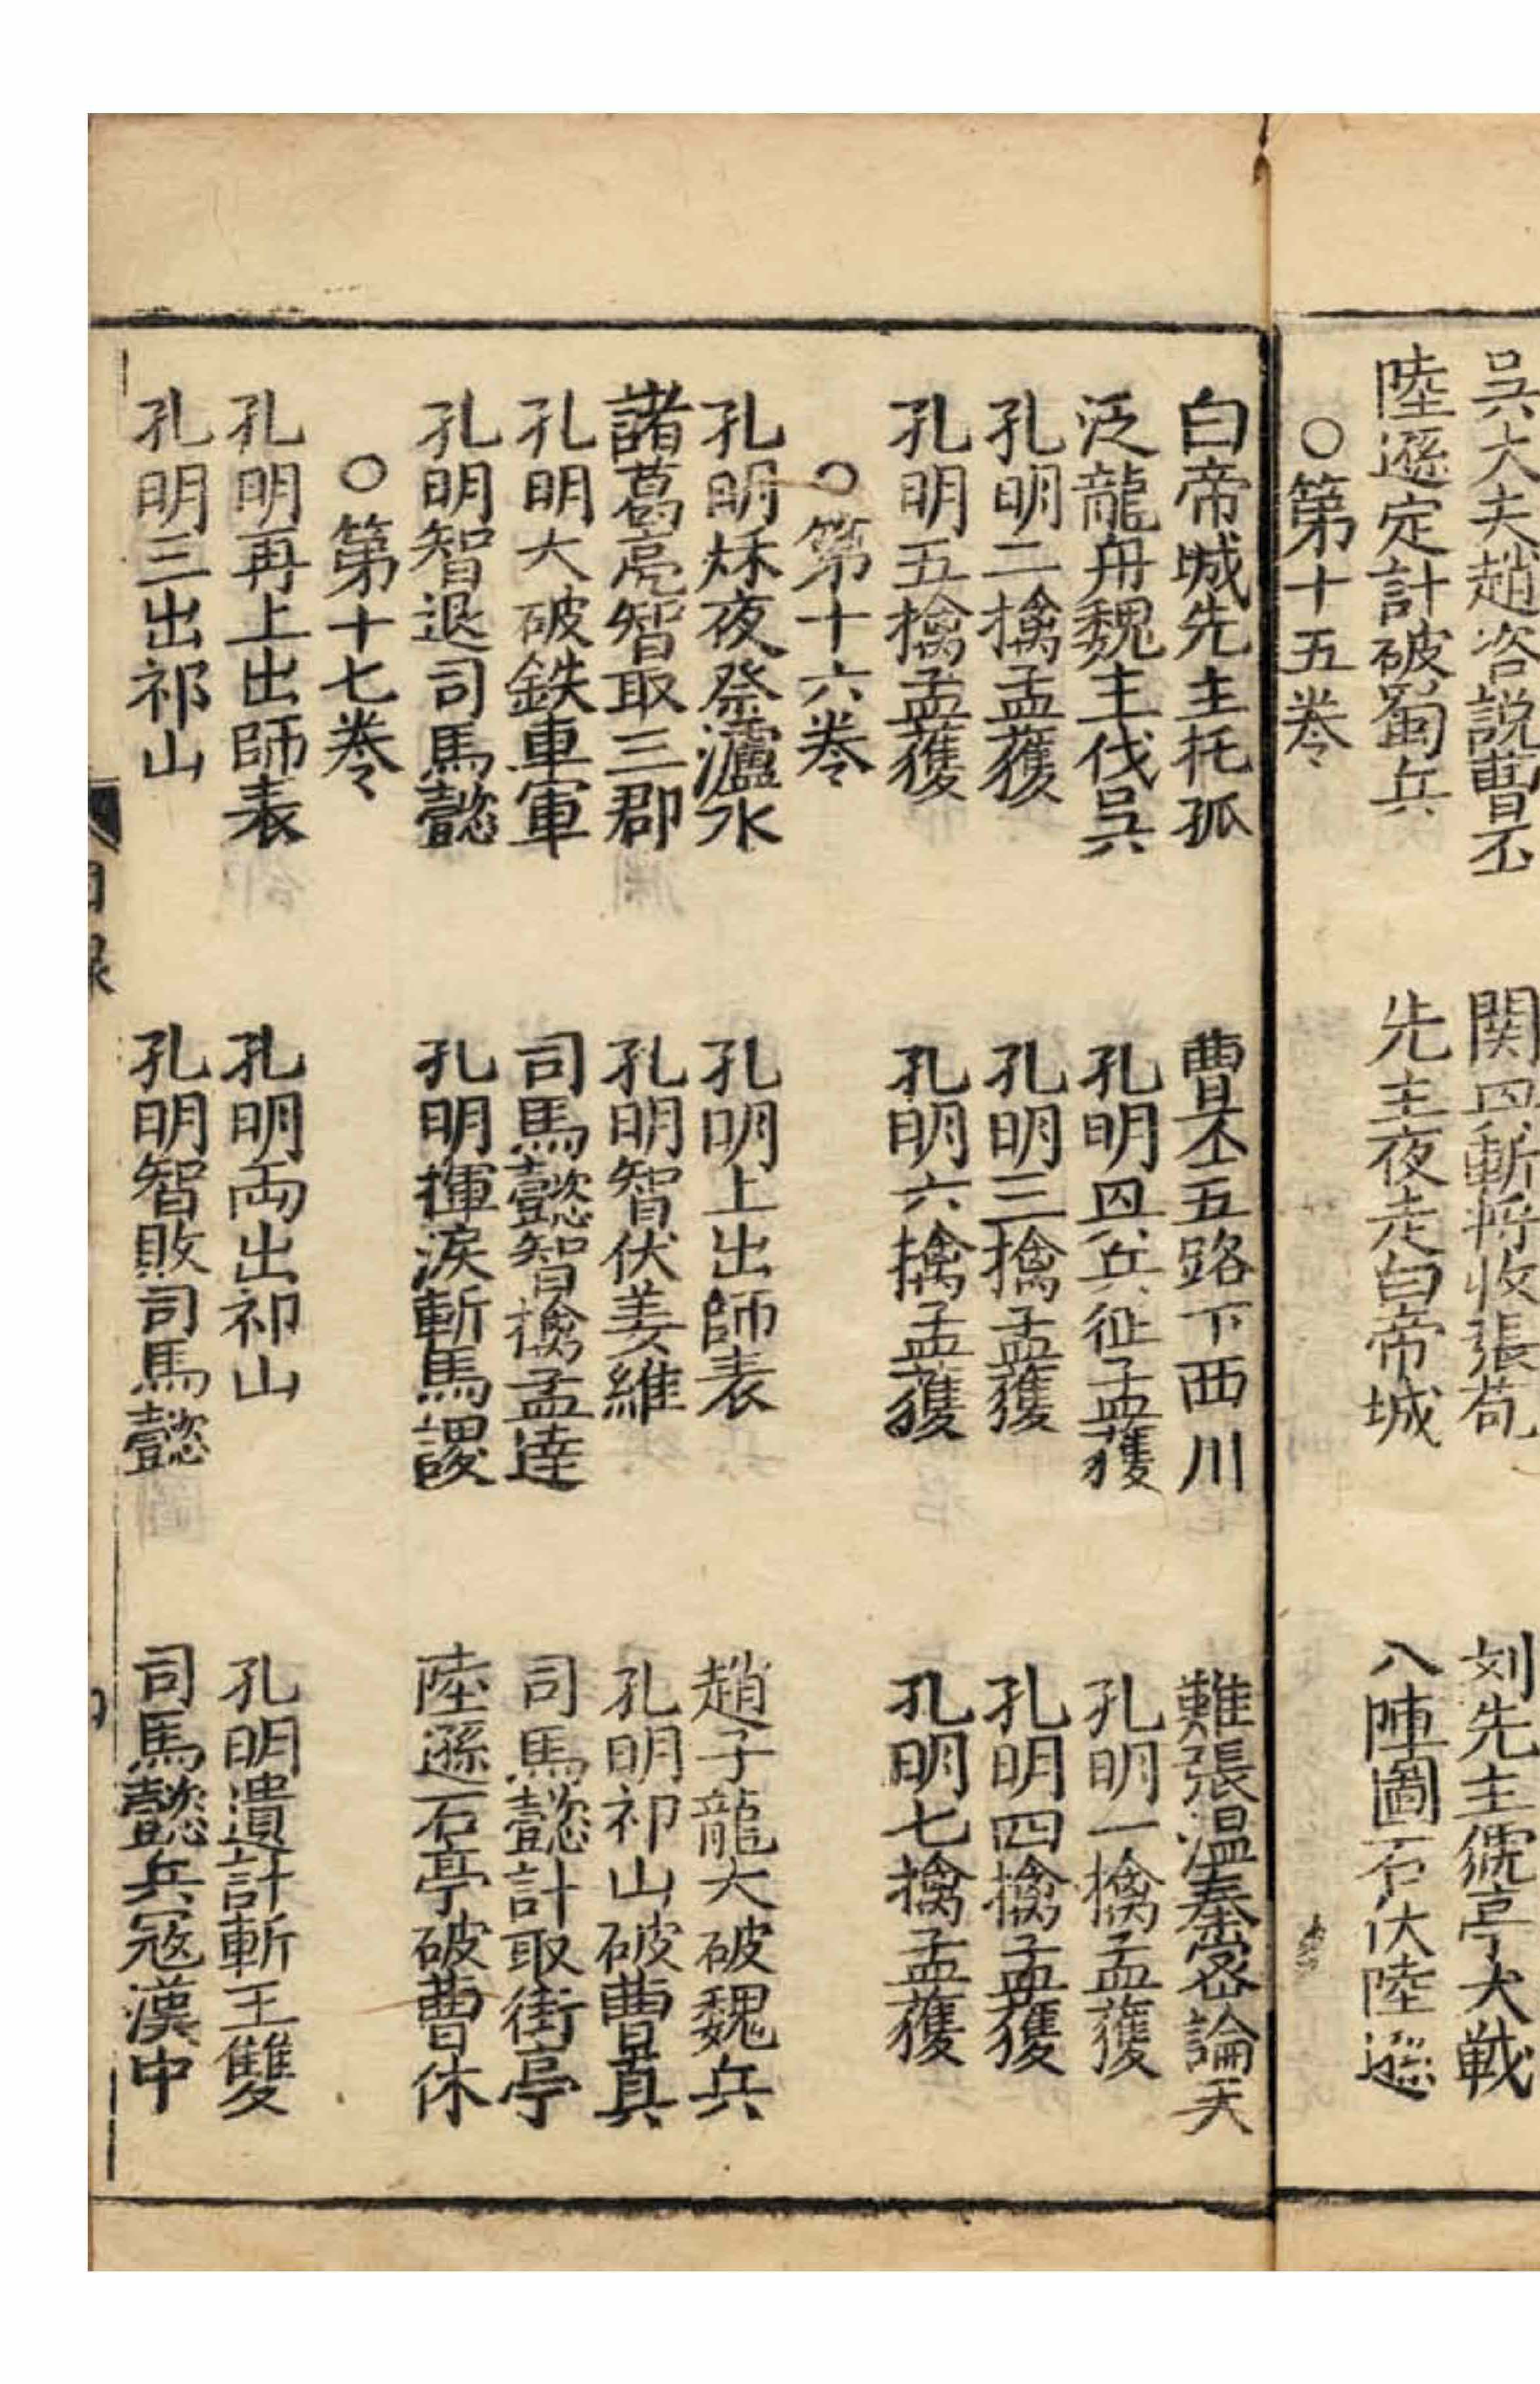 吳大夫趙咨說曹丕　関興斬將收張苞　刘先主猇亭大戰
陸遜定計破蜀兵　先主夜走白帝城　八陣圖石伏陸遜
○第十五卷
白帝城先主托孤　曹丕五路下西川　難張溫秦宓論天
泛龍舟魏主伐吳　孔明興兵征孟獲　孔明一擒孟獲
孔明二擒孟獲　孔明三擒孟獲　孔明四擒孟獲
孔明五擒孟獲　孔明六擒孟獲　孔明七擒孟獲
○第十六卷
孔明秌夜祭瀘水　孔明上出師表　趙子龍大破魏兵
諸葛亮智取三郡　孔明智伏姜維　孔明祁山破曹真
孔明大破鉄車軍　司馬懿智擒孟達　司馬懿計取街亭
孔明智退司馬懿　孔明揮淚斬馬謖　陸遜石亭破曹休
○第十七卷
孔明再上出師表　孔明両出祁山　孔明遺計斬王雙
孔明三出祁山　孔明智敗司馬懿　司馬懿兵寇漢中
目録